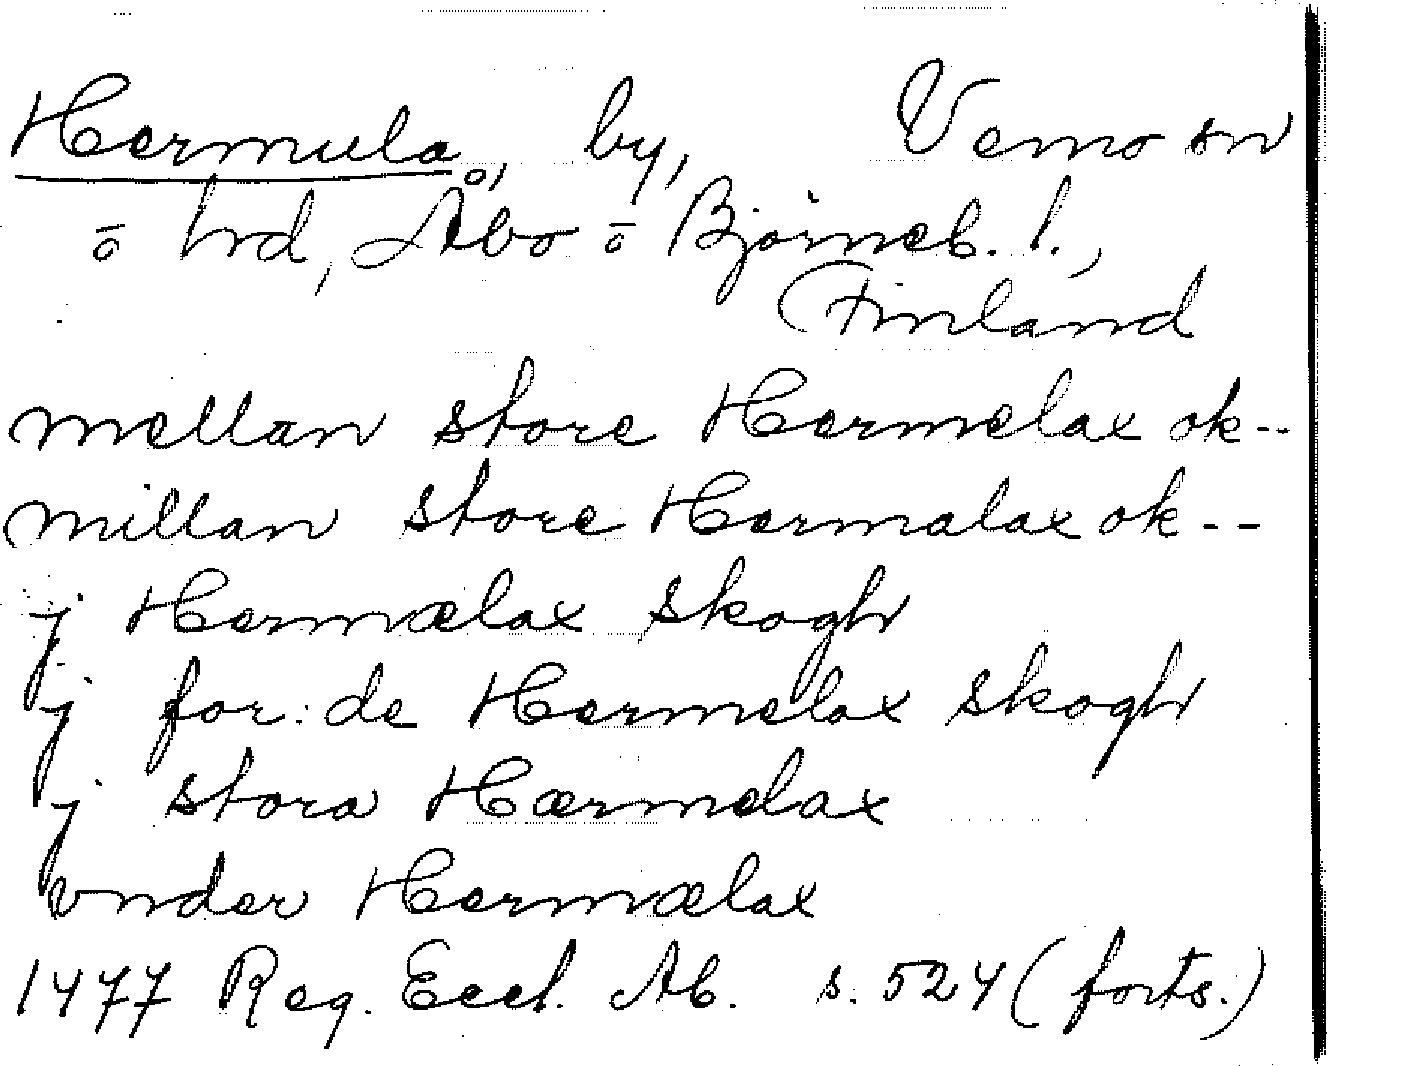 Hermula, by, Vemo sn
o hd, Åbo o Björneb. l.,
Finland
mellan store Hermelax ok--
millan store Hermalax ok--
j Hermælax skogh
j for:de Hermelax skogh
j stora Hærmelax
vnder Hermælax
1477 Reg. Eccl. Ab. s. 524 (forts.)